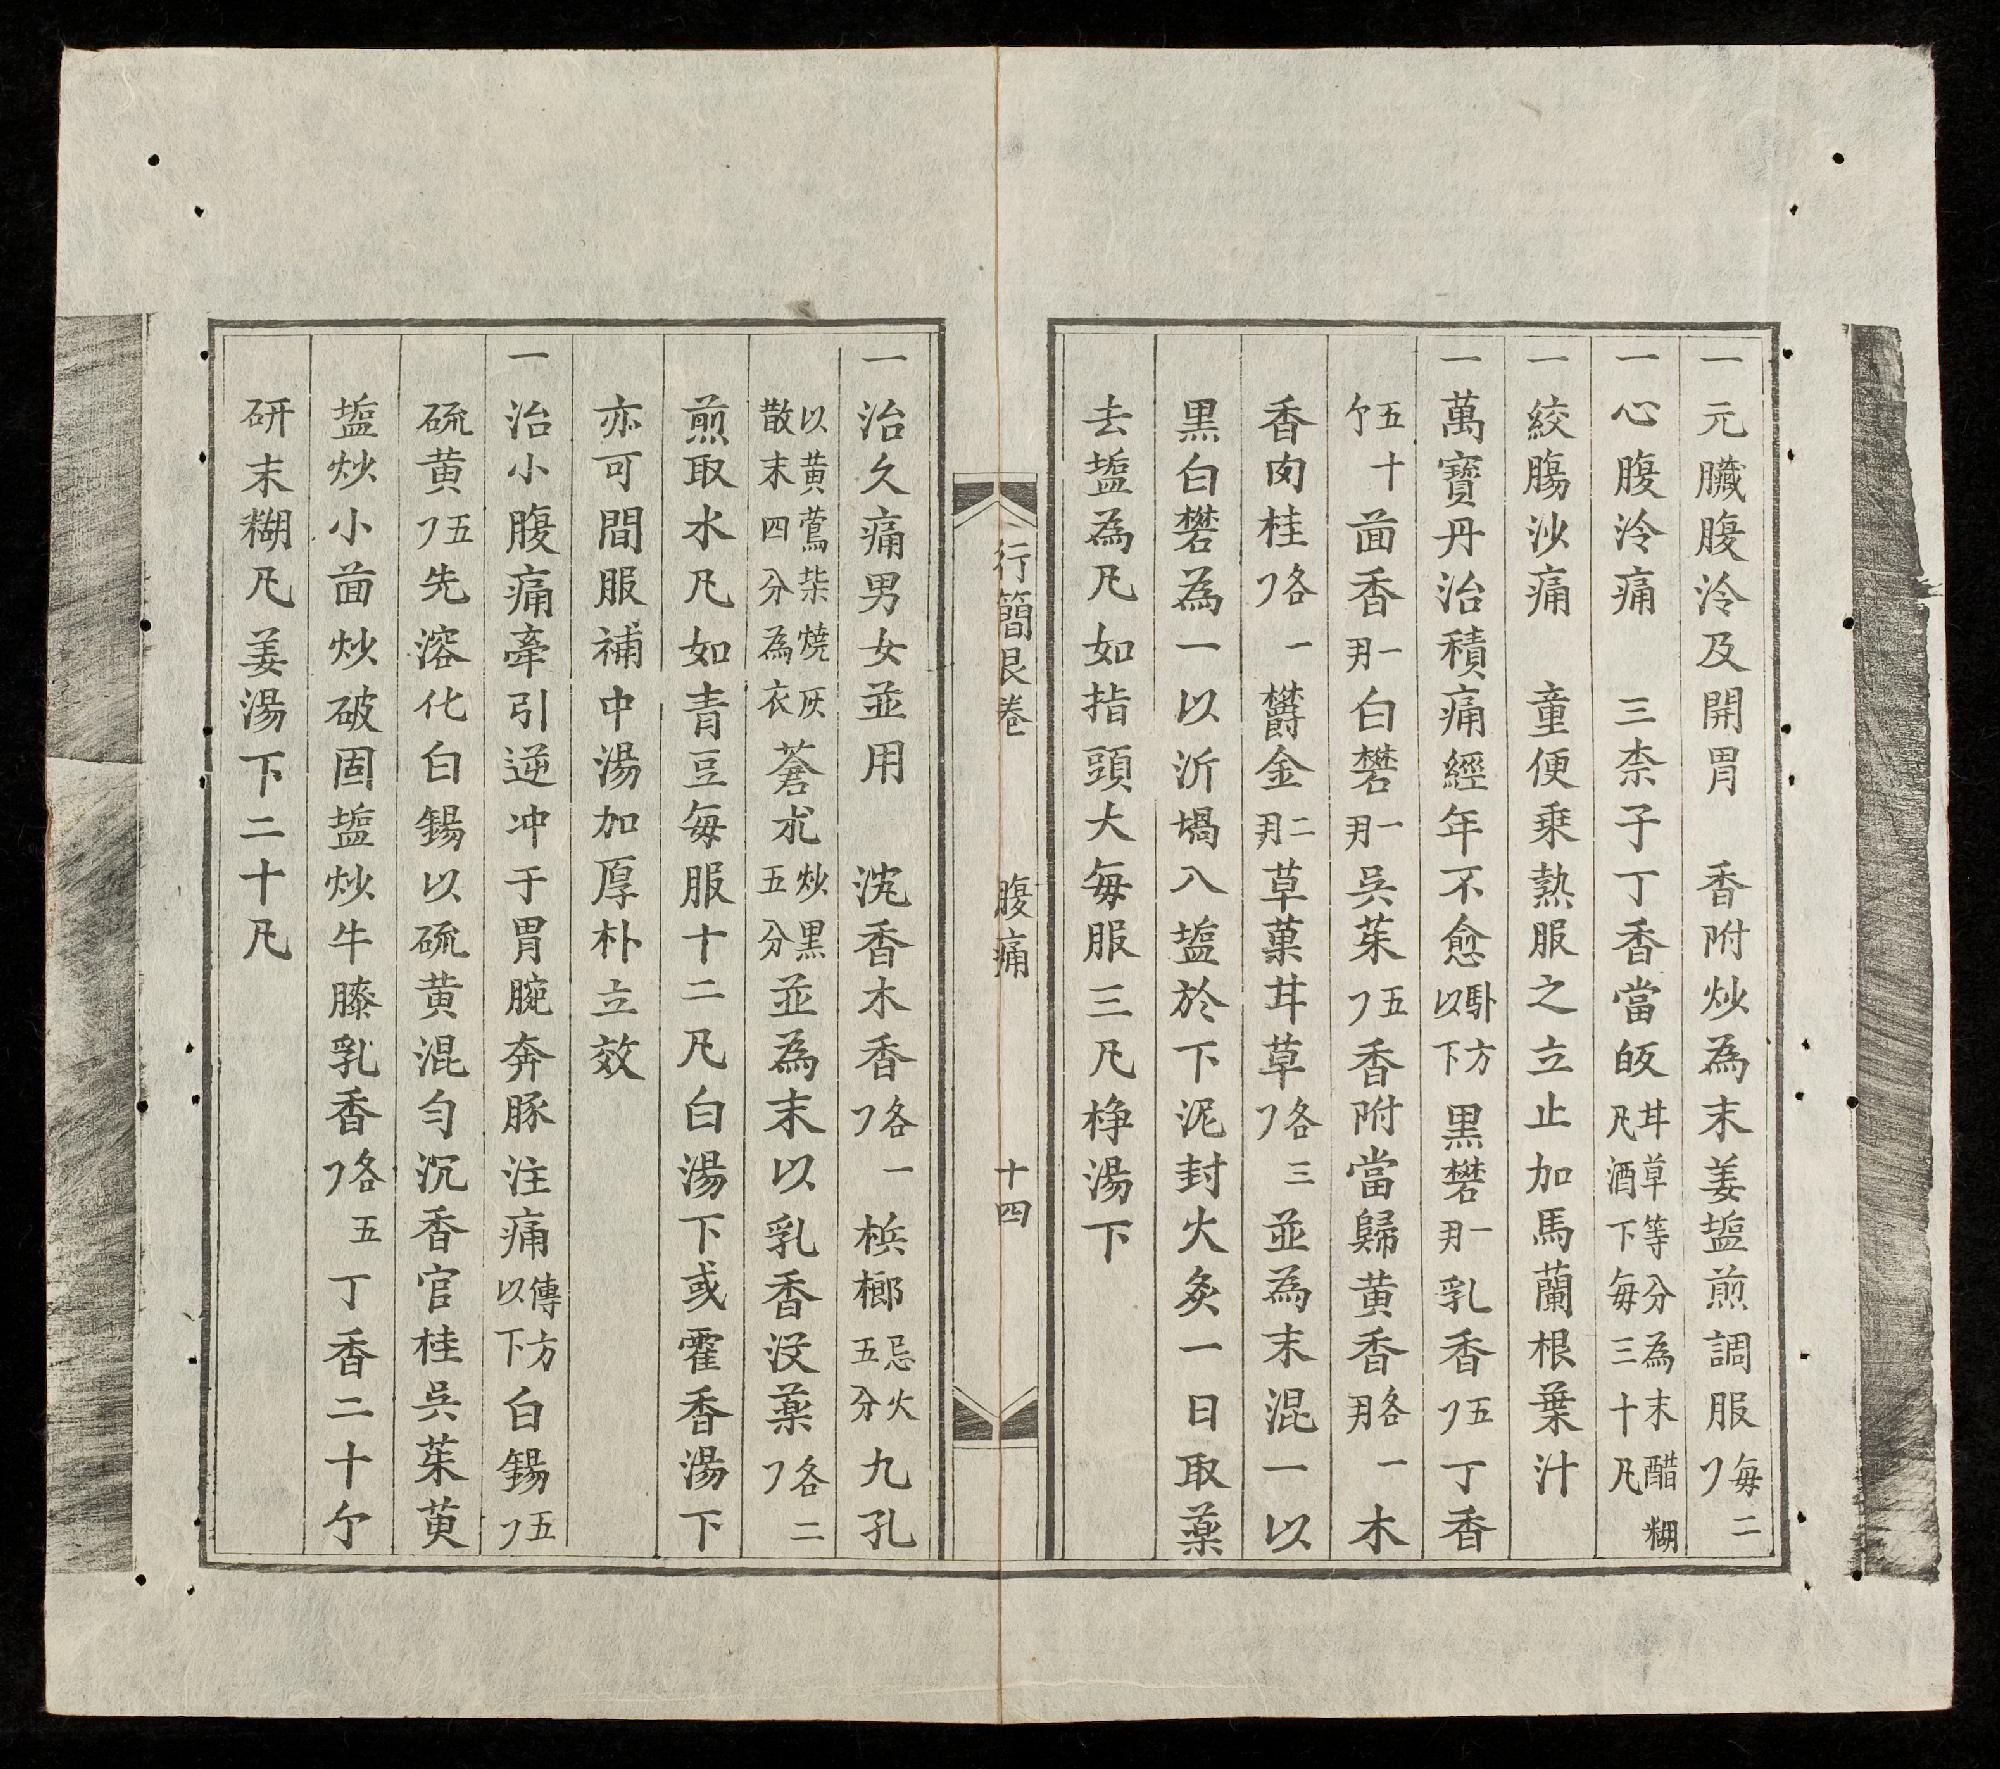 一元臟腹泠及開胃　香附炒為末姜塩煎調服每二𠃌
一心腹泠痛　三柰子丁香當皈甘草等分為末醋糊凡酒下每三十凡
一絞膓沙痛　童便乗熱服之立止加馬蘭根葉汁
一萬寶丹治積痛經年不愈卧方以下黒礬一刄乳香五𠃌丁香
五十个茴香一刄白礬一刄呉茱五𠃌香附當歸黄香各一刄木
香肉桂各一𠃌欝金二刄草菓甘草各三𠃌並為末混一以
黒白礬為一以沂堝入塩於下泥封火炙一日取薬
去塩為凡如指頭大每服三凡　湯下
行簡艮卷　腹痛　十四
一治久痛男女並用　沈香木香各一𠃌梹榔忌火五分九孔
以黄鶯柴燒灰散末四分為衣蒼朮炒黒五分並為末以乳香沒薬各二𠃌
煎取水凡如青豆每服十二凡白湯下或霍香湯下
亦可間服補中湯加厚朴立效
一治小腹痛牽引逆冲于胃腕奔豚注痛傳方以下白錫五𠃌
硫黄五𠃌先溶化白錫以硫黄混勻沉香官桂呉茱萸
塩炒小茴炒破固塩炒牛膝乳香各五𠃌丁香二十个
研末糊凡姜湯下二十凡